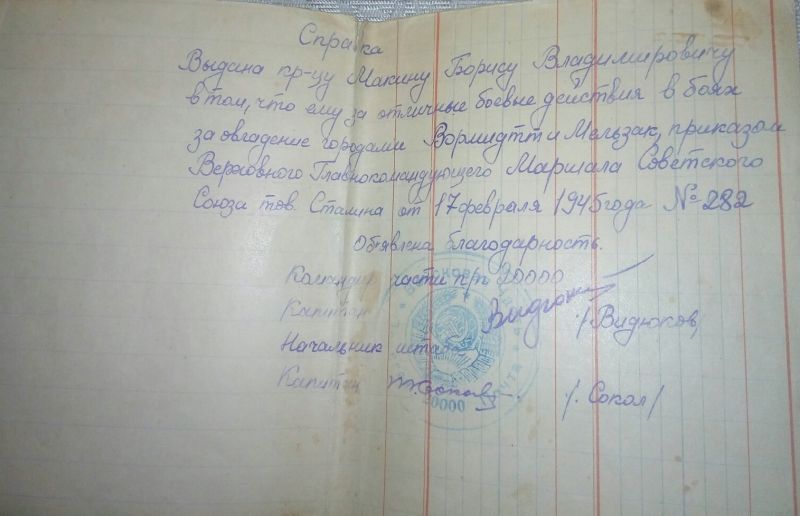 Справка
Выдана кр-цу Макину Борису Владимировичу
в том, что ему за отличные боевые действия в боях
за овладение городами Вормидтт и Мельзак, приказом
Верховного Главнокомандующего Маршала Советского
Союза тов. Сталина от 17 февраля 1945 года № 282
Объявлена благодарность.
Командир части пп 20000
Капитан /Видюков/
Начальник штаба
Капитан /. Сокол/
20000